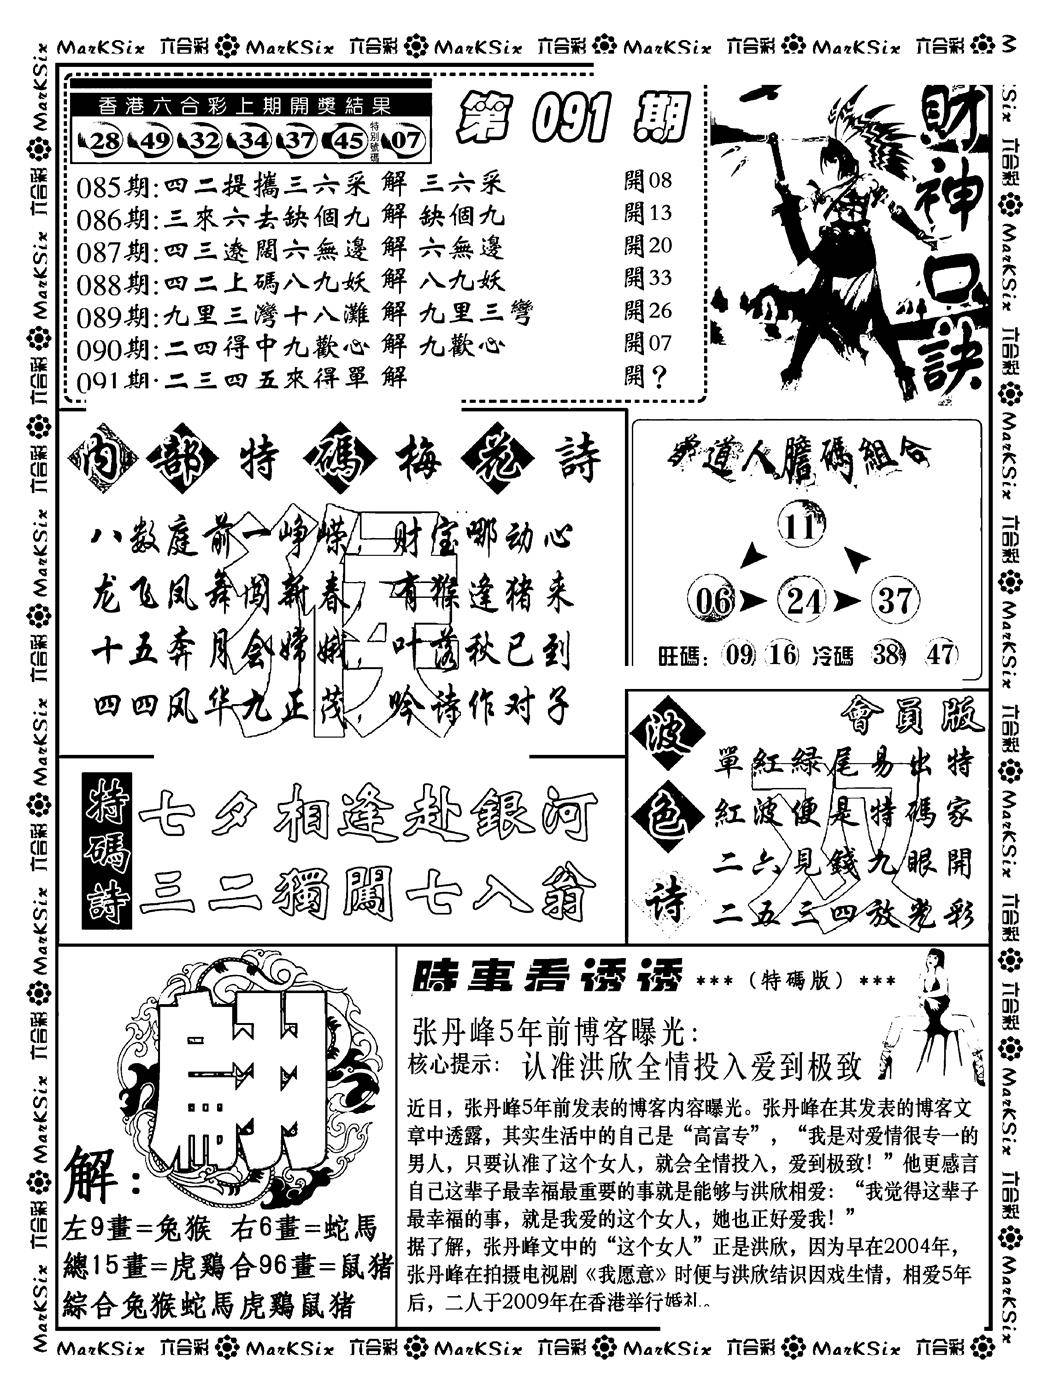 MarKSix 六合彩 MarKSix 六合彩 MarKSix 六合彩 MarKSix 六合彩 MarKSix 六合彩
香港六合彩上期開獎結果
28 49 32 34 37 45 特別號碼 07
第 091 期
財神口訣
085期:四二提攜三六采 解 三六采 開08
086期:三來六去缺個九 解 缺個九 開13
087期:四三遼闊六無邊 解 六無邊 開20
088期:四二上碼八九妖 解 八九妖 開33
089期:九里三灣十八灘 解 九里三彎 開26
090期:二四得中九歡心 解 九歡心 開07
091期:二三四五來得單 解 開?
內部特碼梅花詩
八数庭前一峥嵘，财宝哪动心
龙飞凤舞闯新春，有猴逢猪来
十五奔月会嫦娥，叶落秋已到
四四风华九正茂，吟诗作对子
道人膽碼組合
11
06 24 37
旺碼: 09 16 冷碼 38 47
特碼詩
七夕相逢赴銀河
三二獨闖七入翁
波色诗
會員版
單紅綠尾易出特
紅波便是特碼家
二六見錢九眼開
二五三四放光彩
解:
左9畫=兔猴 右6畫=蛇馬
總15畫=虎鷄合96畫=鼠猪
綜合兔猴蛇馬虎鷄鼠猪
時事看透透 ***（特碼版）***
张丹峰5年前博客曝光：
核心提示： 认准洪欣全情投入爱到极致
近日，张丹峰5年前发表的博客内容曝光。张丹峰在其发表的博客文
章中透露，其实生活中的自己是“高富专”，“我是对爱情很专一的
男人，只要认准了这个女人，就会全情投入，爱到极致！”他更感言
自己这辈子最幸福最重要的事就是能够与洪欣相爱：“我觉得这辈子
最幸福的事，就是我爱的这个女人，她也正好爱我！”
据了解，张丹峰文中的“这个女人”正是洪欣，因为早在2004年，
张丹峰在拍摄电视剧《我愿意》时便与洪欣结识因戏生情，相爱5年
后，二人于2009年在香港举行婚礼。
MarKSix 六合彩 MarKSix 六合彩 MarKSix 六合彩 MarKSix 六合彩 MarKSix 六合彩